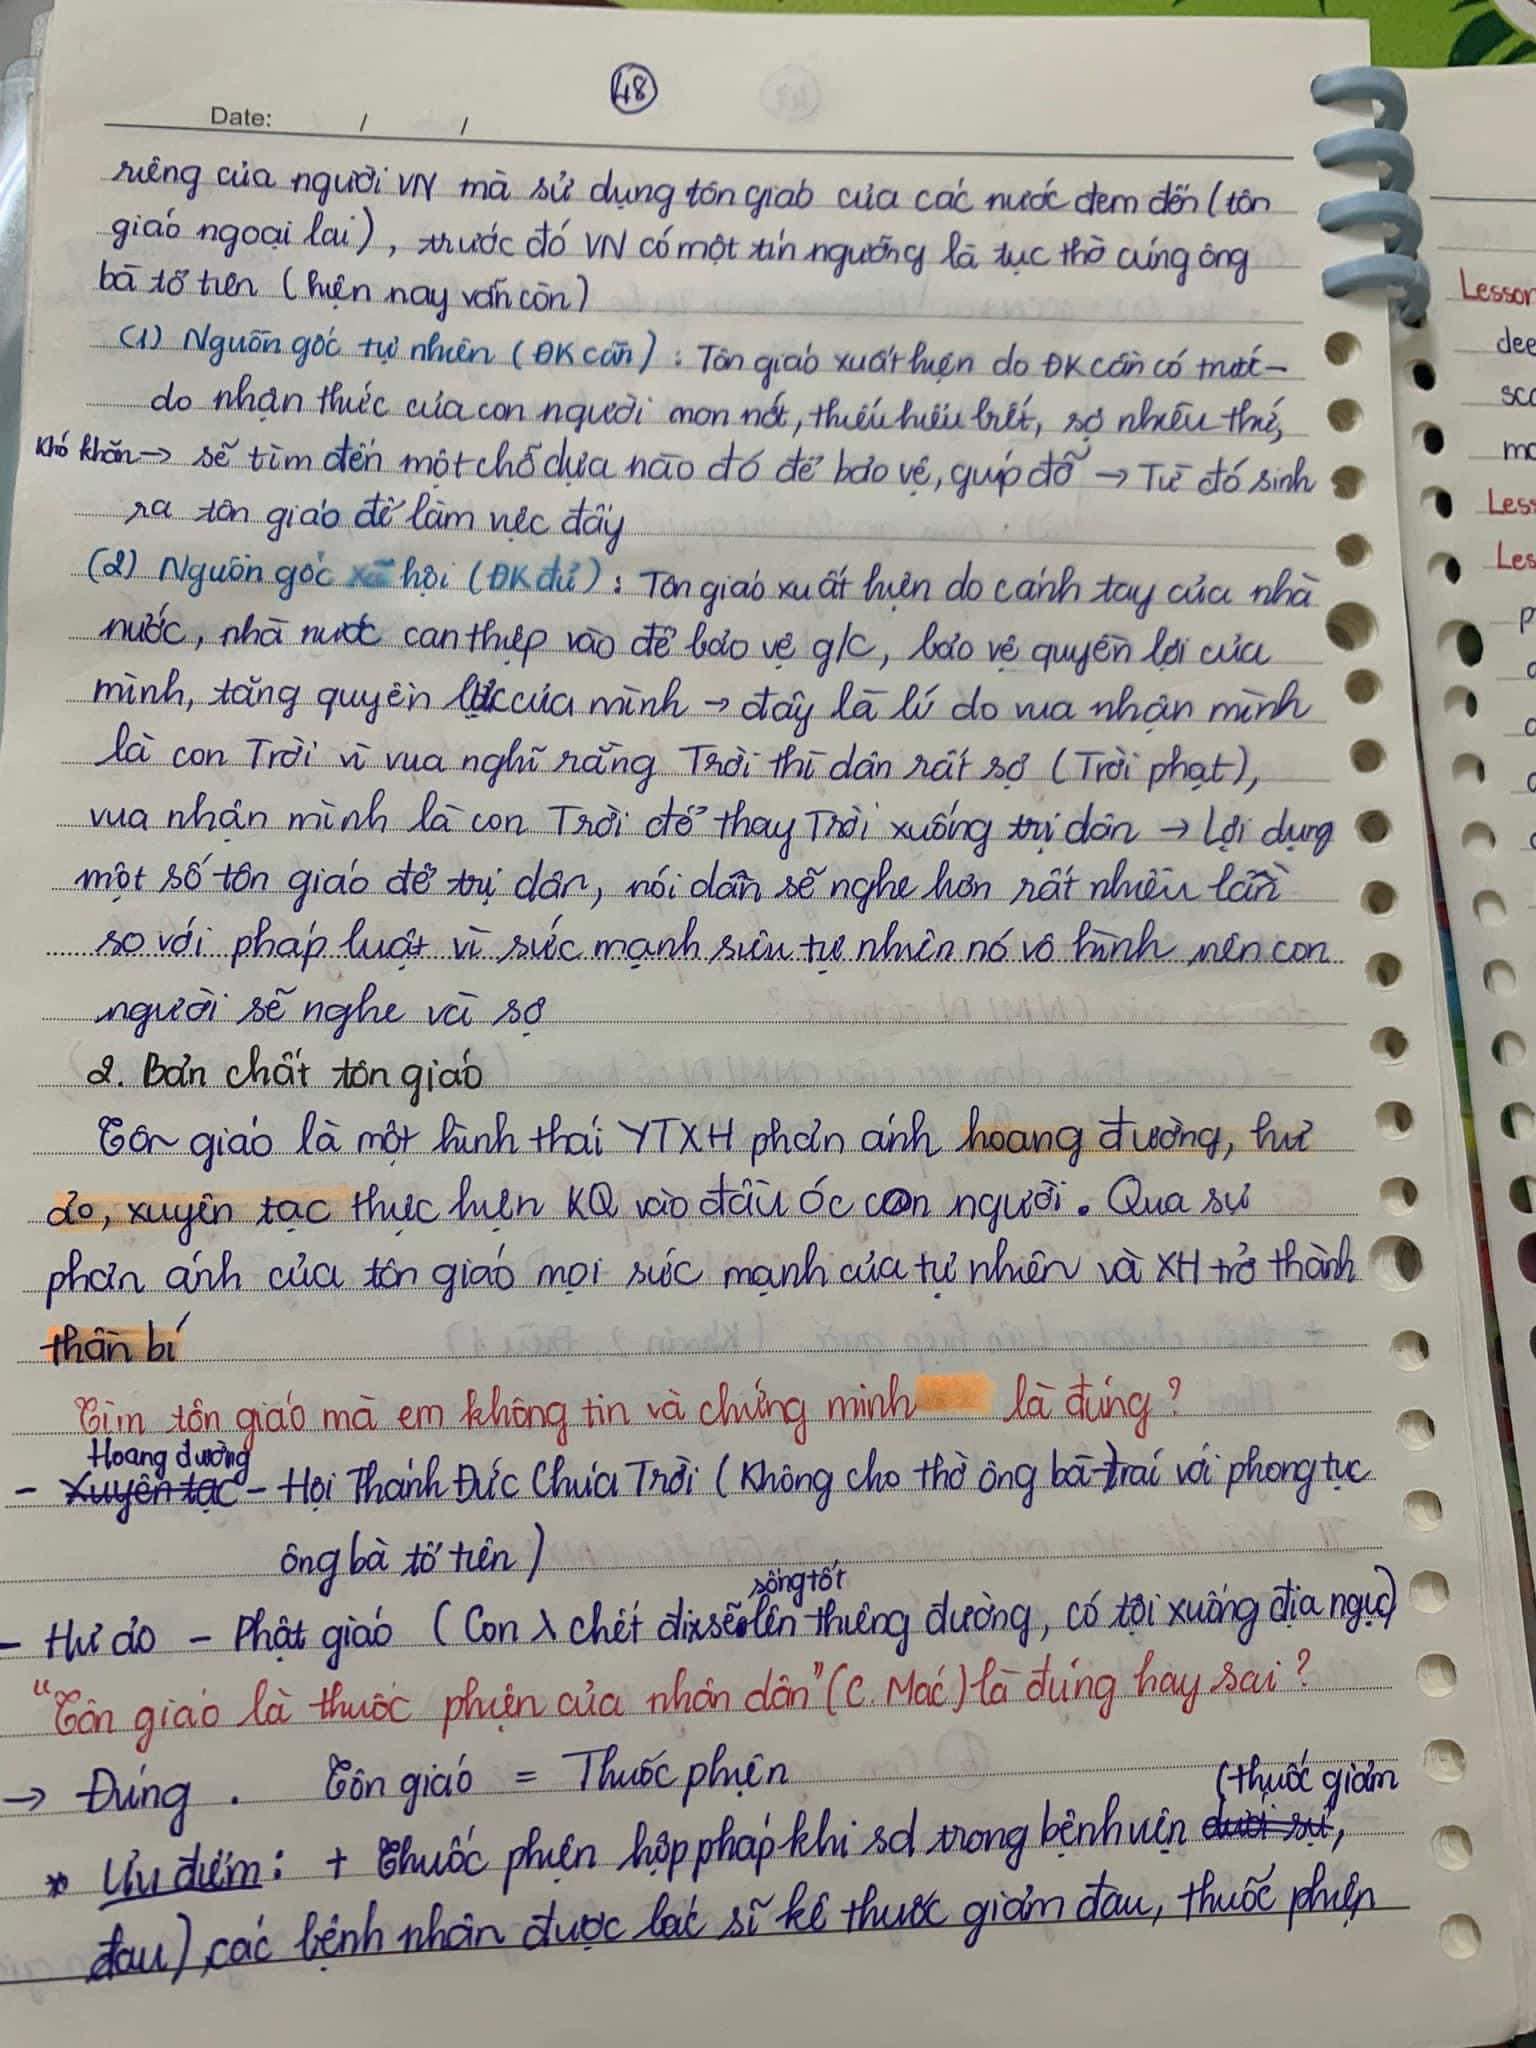 48
Date: / /
riêng của người VN mà sử dụng tôn giáo của các nước đem đến (tôn
giáo ngoại lai), trước đó VN có một tín ngưỡng là tục thờ cúng ông
bà tổ tiên (hiện nay vẫn còn)
(1) Nguồn gốc tự nhiên (ĐK cần): Tôn giáo xuất hiện do ĐK cần có trước-
do nhận thức của con người non nớt, thiếu hiểu biết, sợ nhiều thứ,
khó khăn → sẽ tìm đến một chỗ dựa nào đó để bảo vệ, giúp đỡ → Từ đó sinh
ra tôn giáo để làm việc đấy
(2) Nguồn gốc xã hội (ĐK đủ): Tôn giáo xuất hiện do cánh tay của nhà
nước, nhà nước can thiệp vào để bảo vệ g/c, bảo vệ quyền lợi của
mình, tăng quyền lực của mình → đây là lí do vua nhận mình
là con Trời vì vua nghĩ rằng Trời thì dân rất sợ (Trời phạt),
vua nhận mình là con Trời để thay Trời xuống trị dân → Lợi dụng
một số tôn giáo để trị dân, nói dân sẽ nghe hơn rất nhiều lần
so với pháp luật vì sức mạnh siêu tự nhiên nó vô hình nên con
người sẽ nghe và sợ
2. Bản chất tôn giáo
Tôn giáo là một hình thái YTXH phản ánh hoang đường, hư
ảo, xuyên tạc thực hiện KQ vào đầu óc con người. Qua sự
phản ánh của tôn giáo mọi sức mạnh của tự nhiên và XH trở thành
thần bí
Tìm tôn giáo mà em không tin và chứng minh là đúng?
Hoang đường
- Xuyên tạc - Hội Thánh Đức Chúa Trời (Không cho thờ ông bà → trái với phong tục
ông bà tổ tiên)
sống tốt
- Hư ảo - Phật giáo (Con λ chết đi sẽ lên thiêng đường, có tội xuống địa ngục)
"Tôn giáo là thuốc phiện của nhân dân" (C. Mác) là đúng hay sai?
→ Đúng. Tôn giáo = Thuốc phiện
(thuốc giảm
* Ưu điểm: + Thuốc phiện hợp pháp khi sd trong bệnh viện dưới sự,
đau), các bệnh nhân được bác sĩ kê thuốc giảm đau, thuốc phiện
Lesson
dee
sco
mo
Less
Les